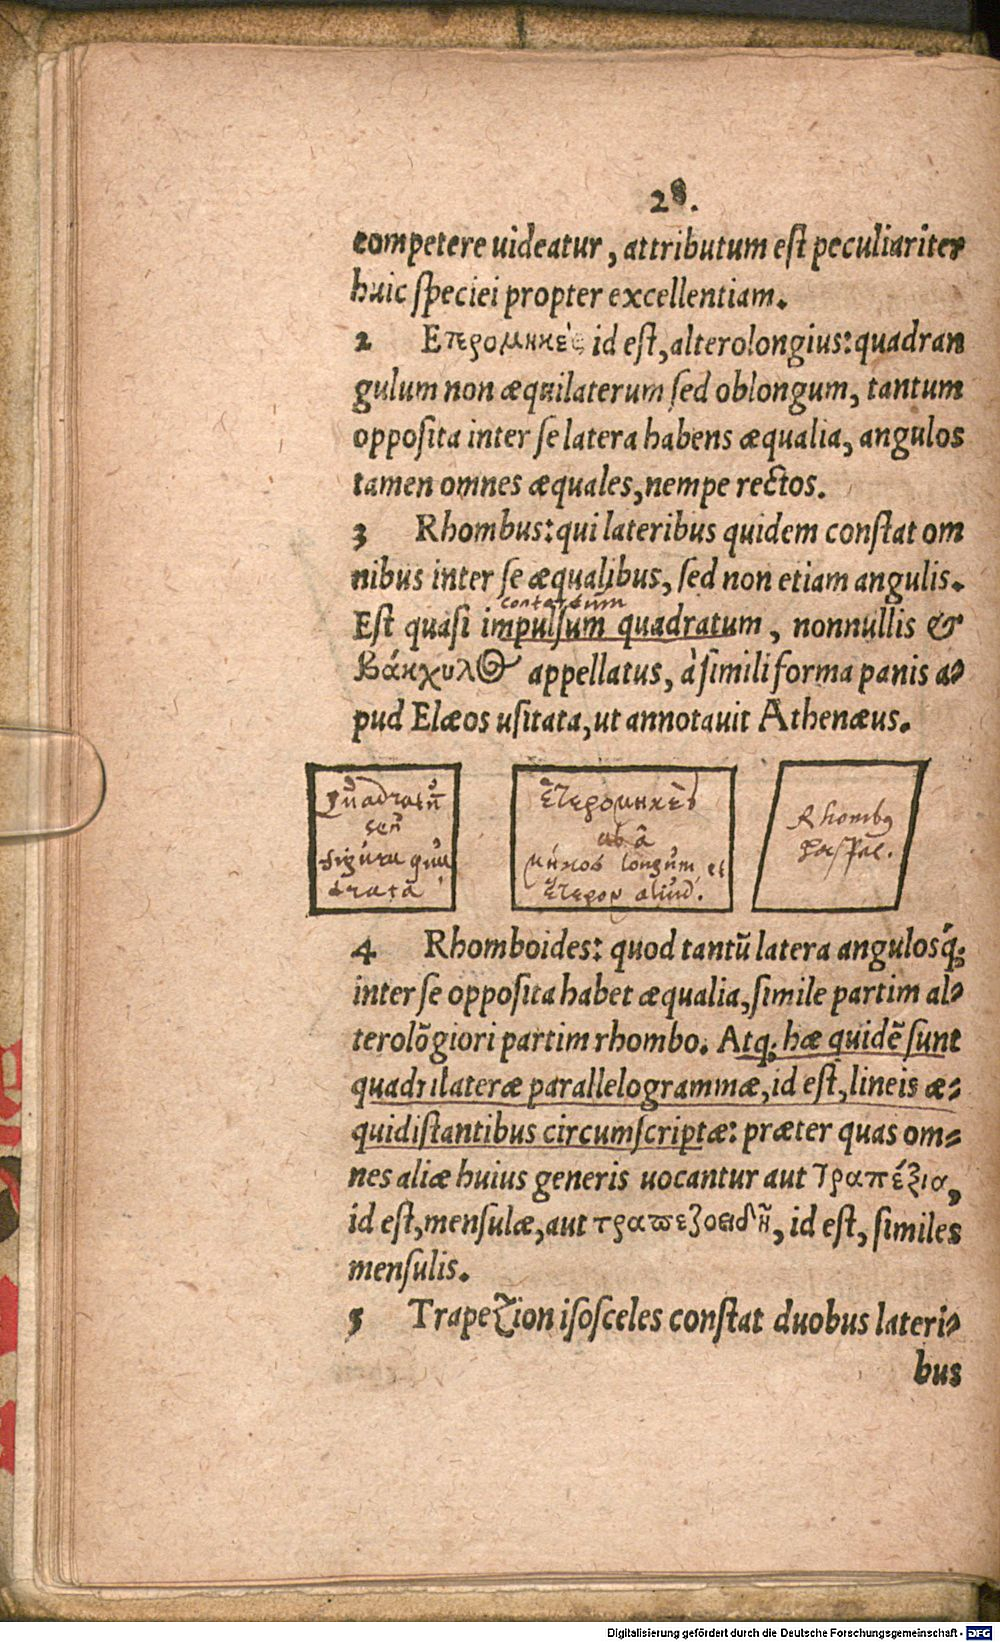 28.
competere uideatur, attributum est peculiariter
huic speciei propter excellentiam.
2 Ετερομηκὲς id est, alterolongius: quadran
gulum non æquilaterum sed oblongum, tantum
opposita inter se latera habens æqualia, angulos
tamen omnes æquales, nempe rectos.
3 Rhombus: qui lateribus quidem constat om
nibus inter se æqualibus, sed non etiam angulis.
Est quasi impulsum quadratum, nonnullis &
Βάκχυλος appellatus, à simili forma panis a-
pud Elæos usitata, ut annotauit Athenæus.
Quadratũ
seu
figura qua
drata
ἑτερομηκὲς
ab
μῆκος longum et
ἕτερον aliud.
Rhombus
4 Rhomboides: quod tantũ latera angulosq́;
inter se opposita habet æqualia, simile partim al-
terolõgiori partim rhombo. Atq; hæ quidẽ sunt
quadrilateræ parallelogrammæ, id est, lineis æ-
quidistantibus circumscriptæ: præter quas om-
nes aliæ huius generis uocantur aut Τραπέζια,
id est, mensulæ, aut τραπεζοειδῆ, id est, similes
mensulis.
5 Trapezion isosceles constat duobus lateri-
bus
Digitalisierung gefördert durch die Deutsche Forschungsgemeinschaft - DFG